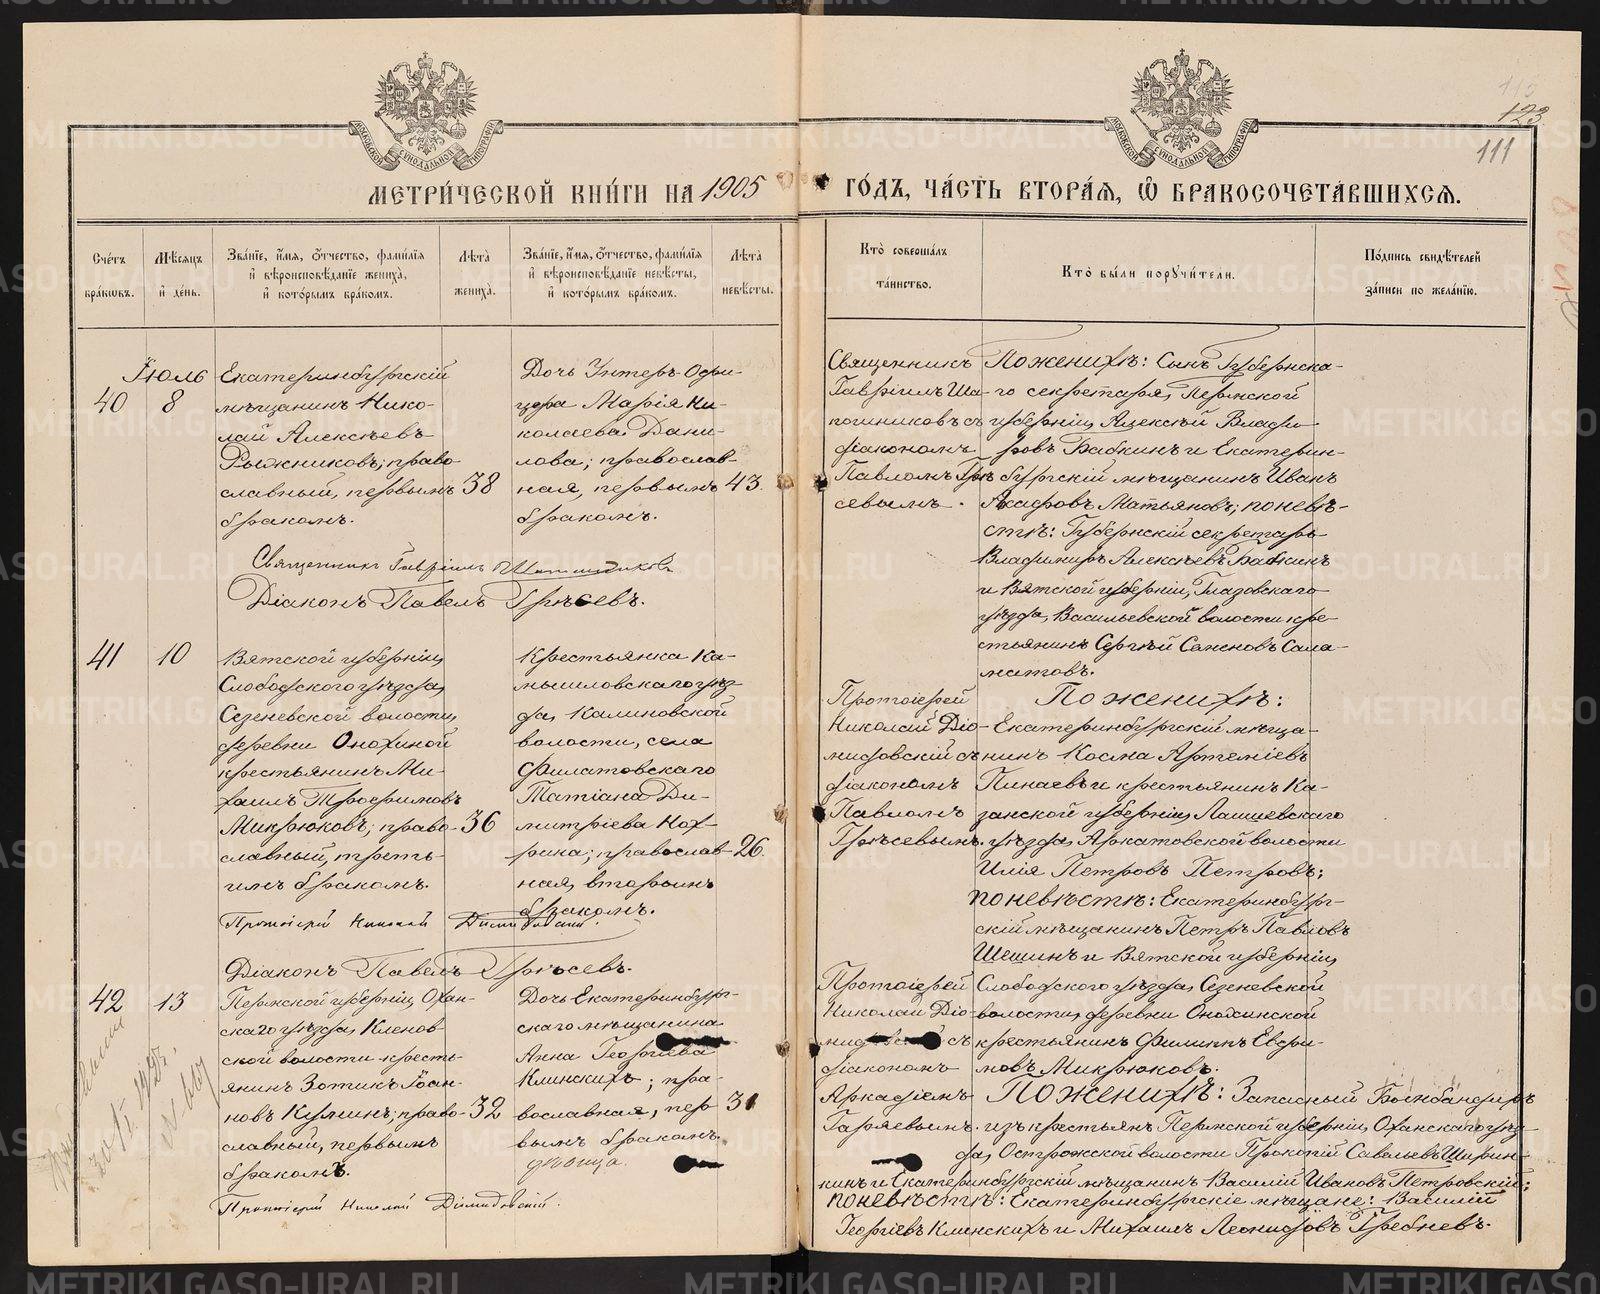 115
123
111
МОСКОВСКОЙ СѴНОДАЛЬНОЙ ТИПОГРАФІИ
МОСКОВСКОЙ СѴНОДАЛЬНОЙ ТИПОГРАФІИ
МЕТРИ́ЧЕСКОЙ КНИ́ГИ НА 1905 ГО́ДЪ, ЧА́СТЬ ВТОРА́Ѧ, Ѽ БРАКОСОЧЕТА́ВШИХСѦ.
Сче́тъ бра́кѡвъ.
Мѣ́сѧцъ и҆ де́нь.
Зва́нїе, и҆́мѧ, ѻ҆́тчество, фами́лїѧ
и҆ вѣроисповѣ́данїе жениха̀,
и҆ кото́рымъ бра́комъ.
Лѣ́та жениха̀.
Зва́нїе, и҆́мѧ, ѻ҆́тчество, фами́лїѧ
и҆ вѣроисповѣ́данїе невѣ́сты,
и҆ кото́рымъ бра́комъ.
Лѣ́та невѣ́сты.
Кто̀ соверша́лъ
та́инство.
Кто̀ бы́ли порꙋчи́тели.
По́дпись свидѣ́телей
за́писи по жела́нїю.
40
Іюль
8
Екатеринбургскій
мѣщанинъ Нико-
лай Алексѣевъ
Рыжниковъ; право-
славный, первымъ
бракомъ.
38
Дочь Унтеръ-Офи-
цера Марія Ни-
колаева Дани-
лова; православ-
ная, первымъ
бракомъ.
43.
Священникъ
Гавріилъ Ша-
пошниковъ съ
діакономъ
Павломъ Грѣ-
севымъ.
По женихѣ: Сынъ Губернска-
го секретаря, Пермской
губерніи Алексѣй Влади-
ровъ Бабкинъ и Екатерин-
бургскій мѣщанинъ Иванъ
Матьяновъ; по невѣ-
стѣ: Губернскій секретарь
Владимиръ Алексѣевъ Бабкинъ
и Вятской губерніи, Глазовскаго
уѣзда, Васильевской волости кре-
стьянинъ Сергѣй Семеновъ Сала-
матовъ.
Священникъ Гавріилъ Шапошниковъ
Діаконъ Павелъ Грѣсевъ.
41
10
Вятской губерніи,
Слободскаго уѣзда,
Сезеневской волости,
деревни Онохиной
крестьянинъ Ми-
хаилъ Трофимовъ
Микрюковъ; право-
славный, треть-
имъ бракомъ.
36
Крестьянка Ка-
мышловскаго уѣз-
да, Калиновской
волости, села
Филатовскаго
Татіана Ди-
митріева Нох-
рина; православ-
ная, вторымъ
бракомъ.
26.
Протоіерей
Николай Діо-
мидовскій съ
діакономъ
Павломъ
Грѣсевымъ.
По женихѣ:
Екатеринбургскій мѣща-
нинъ Косма Артеміевъ
Пинаевъ и крестьянинъ Ка-
занской губерніи, Лаишевскаго
уѣзда, Аркатовской волости
Илія Петровъ Петровъ;
по невѣстѣ: Екатеринбург-
скій мѣщанинъ Петръ Павловъ
Шешинъ и Вятской губерніи,
Слободскаго уѣзда, Сезеневской
волости, деревни Онохинской
крестьянинъ Филиппъ Евфи-
мовъ Микрюковъ.
Протоіерей Николай Діомидовскій
Діаконъ Павелъ Грѣсевъ.
42
13
Пермской губерніи, Охан-
скаго уѣзда, Кленов-
ской волости кресть-
янинъ Зотикъ Іоан-
новъ Кузминъ; право-
славный, первымъ
бракомъ.
32
Дочь Екатеринбург-
скаго мѣщанина
Анна Георгіева
Клинскихъ; пра-
вославная, пер-
вымъ бракомъ.
дѣвица.
31
Протоіерей
Николай Діо-
мидовскій съ
діакономъ
Аркадіемъ
Гаряевымъ.
По женихѣ: Запасный Бомбандиръ
изъ крестьянъ Пермской губерніи, Оханскаго уѣз-
да, Острожской волости Прокопій Савельевъ Ширин-
кинъ и Екатеринбургскій мѣщанинъ Василій Ивановъ Петровскій;
по невѣстѣ: Екатеринбургскіе мѣщане: Василій
Георгіевъ Клинскихъ и Михаилъ Леонидовъ Гребневъ.
Протоіерей Николай Діомидовскій.
METRIKI.GASO-URAL.RU